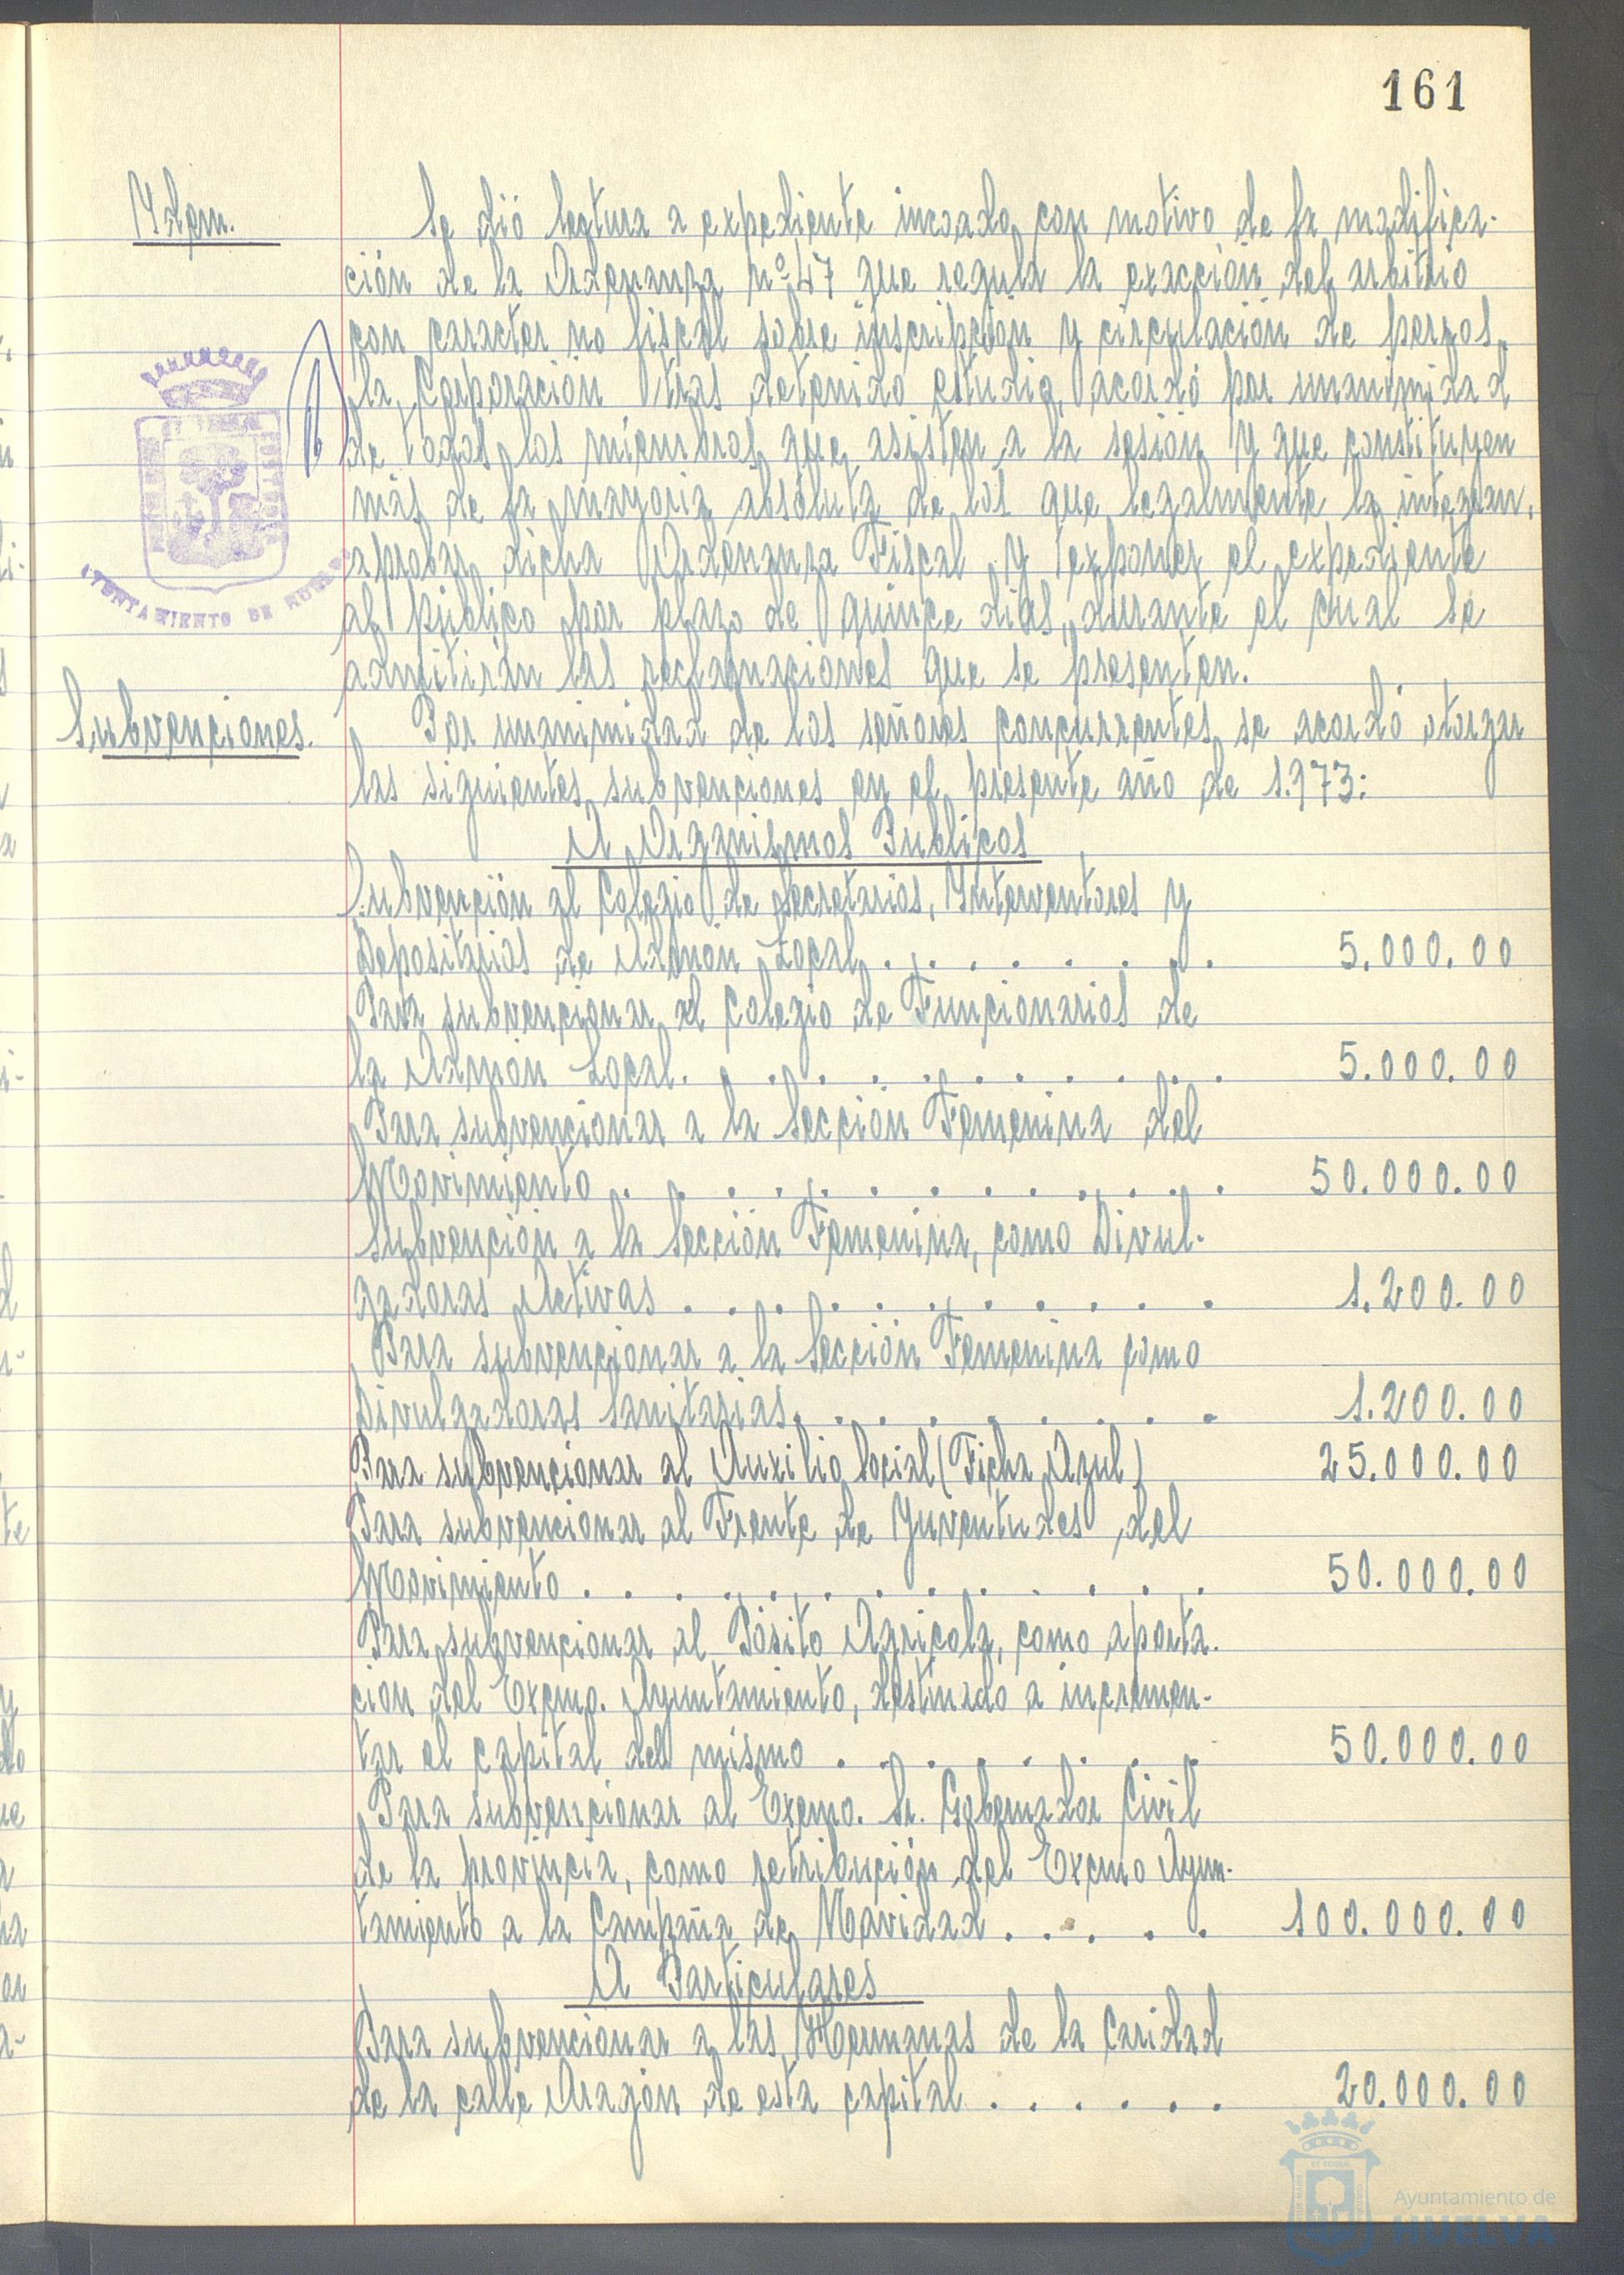 161
Ydem. Se dió lectura a expediente incoado con motivo de la modifica-
ción de la Ordenanza nº 47 que regula la exacción del arbitrio
con caracter no fiscal sobre inscripción y circulación de perros,
la Corporación tras detenido estudio, acordó por unanimidad
de todos los miembros que asisten a la sesión y que constituyen
más de la mayoria absoluta de los que legalmente la integran,
aprobar dicha Ordenanza Fiscal y exponer el expediente
al público por plazo de quince dias, durante el cual se
admitirán las reclamaciones que se presenten.
Subvenciones. Por unanimidad de los señores concurrentes, se acordó otorgar
las siguientes subvenciones en el presente año de 1.973:
A Organismos Publicos
Subvención al Colegio de Secretarios, Interventores y
Depositarios de Admón Local . . . . . . . 5.000.00
Para subvencionar al Colegio de Funcionarios de
la Admón Local. . . . . . . . . . . 5.000.00
Para subvencionar a la Sección Femenina del
Movimiento . . . . . . . . . . . . . 50.000.00
Subvención a la Sección Femenina, como Divul-
gadoras Activas . . . . . . . . . . . 1.200.00
Para subvencionar a la Sección Femenina como
Divulgadoras Sanitarias. . . . . . . . . 1.200.00
Para subvencionar al Auxilio Social (Ficha Azul) 25.000.00
Para subvencionar al Frente de Yuventudes del
Movimiento . . . . . . . . . . . . . 50.000.00
Para subvencionar al Pósito Agricola, como aporta-
cion del Excmo. Ayuntamiento, destinado a incremen-
tar el capital del mismo . . . . . . . . 50.000.00
Para subvencionar al Excmo. Sr. Gobernador Civil
de la provincia, como retribución del Excmo Ayun-
tamiento a la Campaña de Navidad . . . . . 100.000.00
A Particulares
Para subvencionar a las Hermanas de la Caridad
de la calle Aragón de esta capital . . . . . . 20.000.00
AYUNTAMIENTO DE HUELVA
Ayuntamiento de
HUELVA